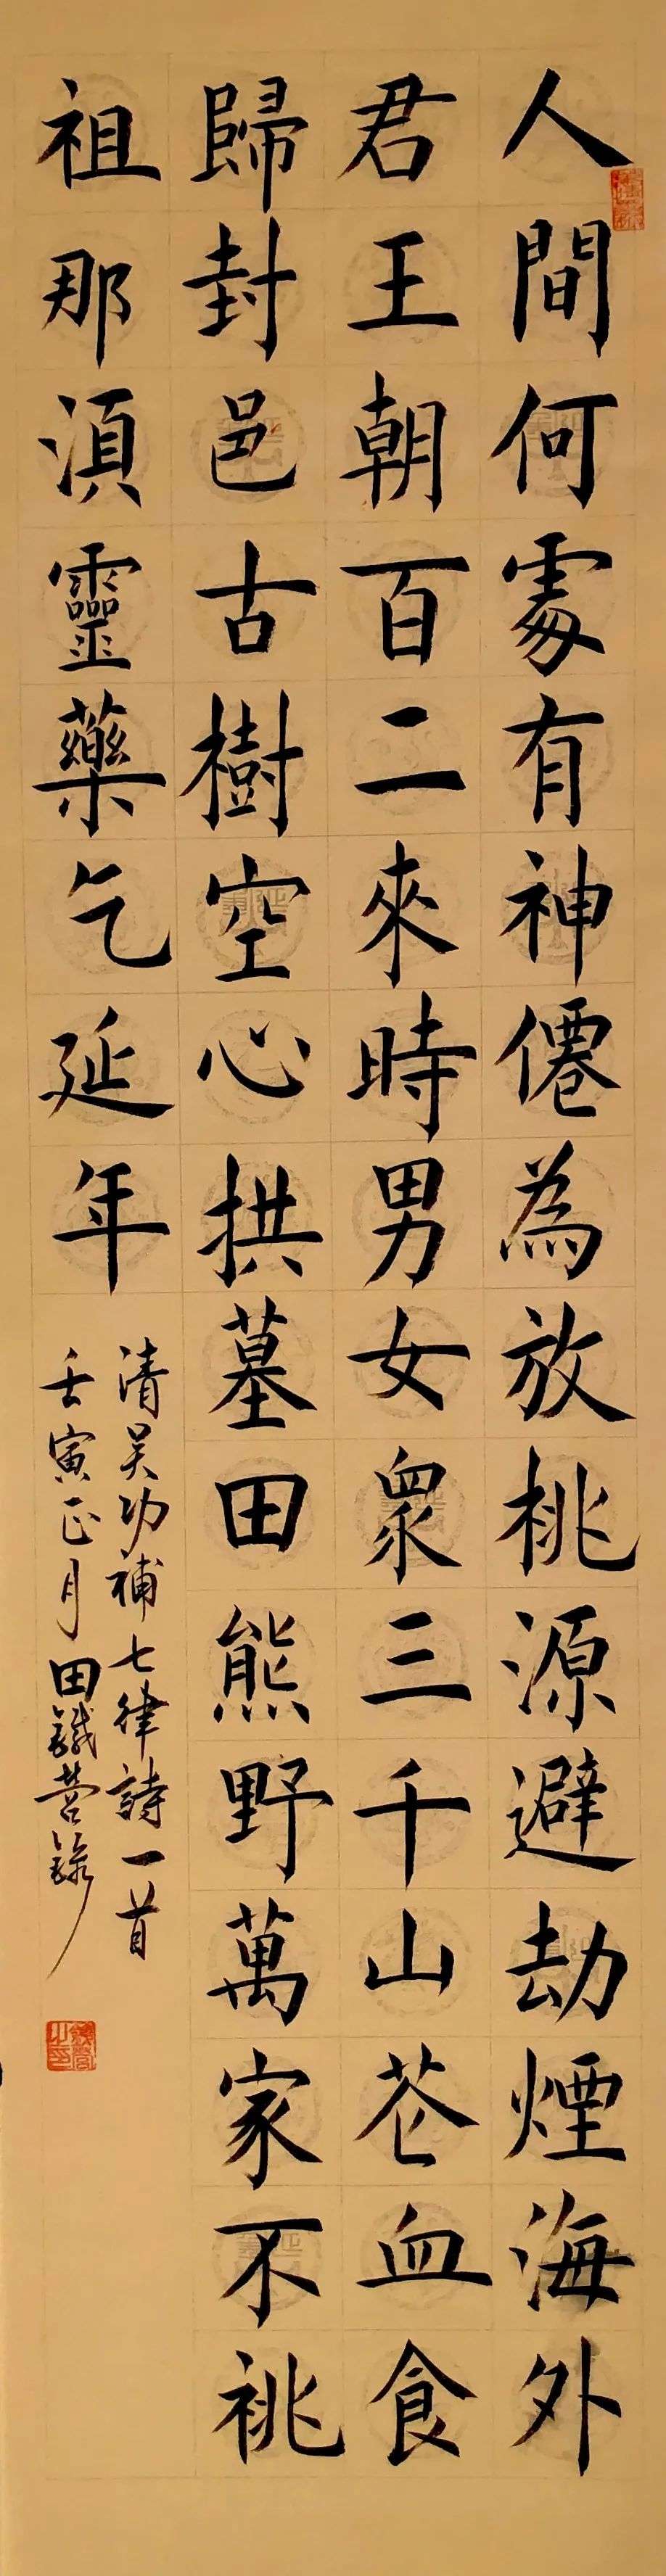 人間何處有神僊為放桃源避劫煙海外
君王朝百二來時男女眾三千山苍血食
歸封邑古樹空心拱墓田熊野萬家不祧
祖那湏靈藥乞延年
清吴功補七律詩一首
壬寅正月田鐵營錄